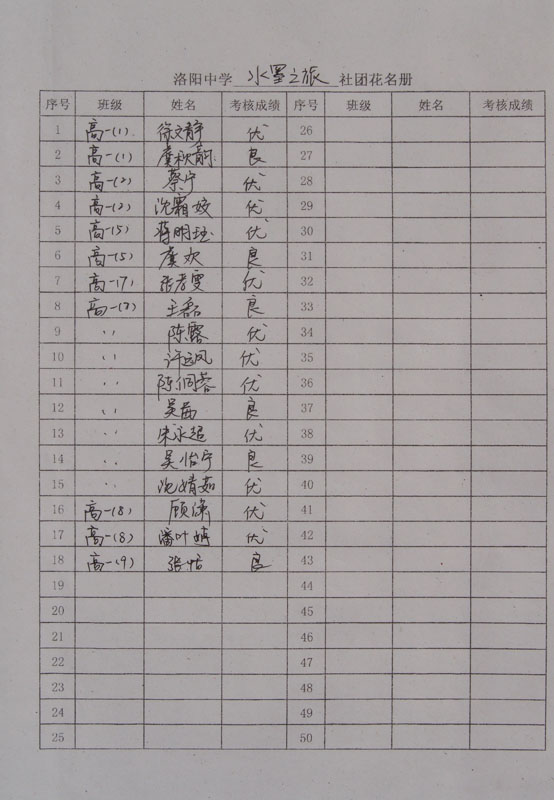 洛阳中学 水墨之旅 社团花名册
序号 班级 姓名 考核成绩 序号 班级 姓名 考核成绩
1 高一(1) 徐文静 优 26
2 高一(1) 虞秋韵 良 27
3 高一(2) 蔡宁 优 28
4 高一(2) 沈霜姣 优 29
5 高一(5) 蒋明珏 优 30
6 高一(5) 虞欢 良 31
7 高一(7) 张孝雯 优 32
8 高一(7) 王磊 良 33
9 〃 陈露 优 34
10 〃 许远风 优 35
11 〃 陈佩蓉 优 36
12 〃 吴茜 良 37
13 〃 宋永超 优 38
14 〃 吴怡宁 良 39
15 〃 沈婧茹 优 40
16 高一(8) 顾涛 优 41
17 高一(8) 潘叶婷 优 42
18 高一(9) 张恬 良 43
19 44
20 45
21 46
22 47
23 48
24 49
25 50